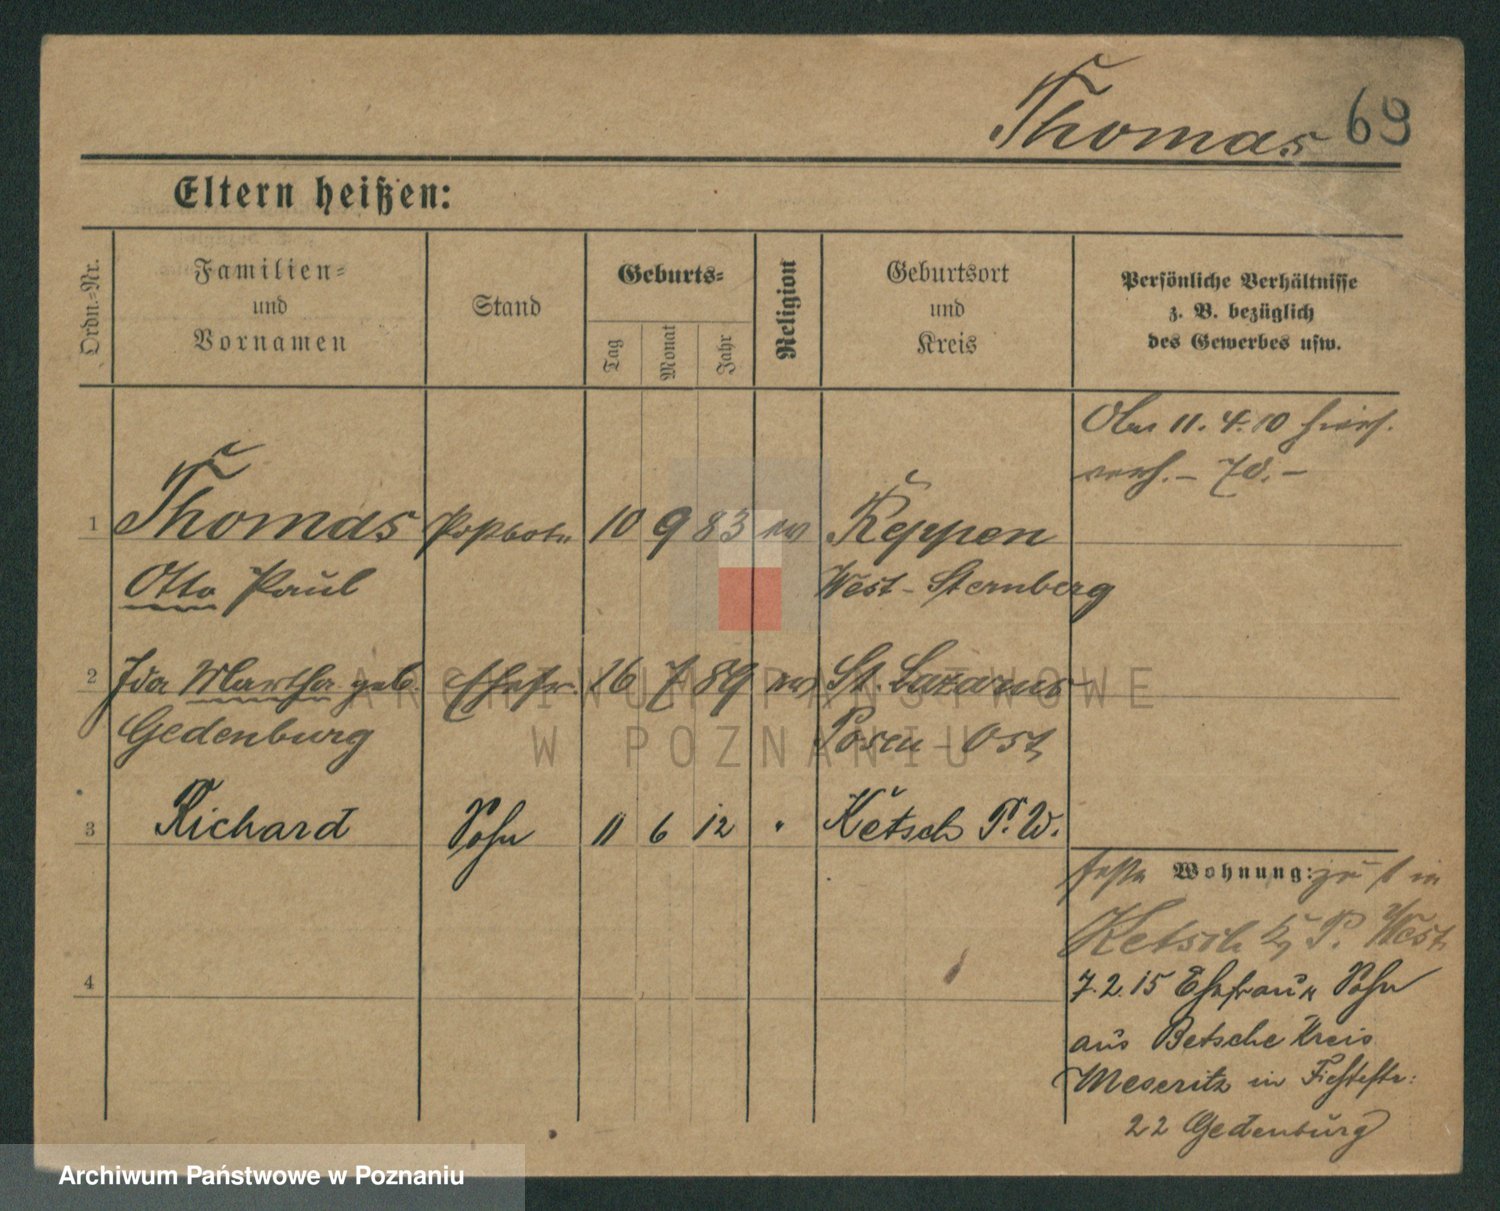 Thomas 69
Eltern heißen:
Ordn.=Nr.
Familien=
und
Vornamen
Stand
Geburts=
Tag
Monat
Jahr
Religion
Geburtsort
und
Kreis
Persönliche Verhältnisse
z. B. bezüglich
des Gewerbes usw.
11. 4. 10
1 Thomas Postbote 10 9 83 ev Reppen
Otto Paul West-Sternberg
2 Ida Martha geb. Ehefr. 26 7 89 ev St. Lazarus
Gedenburg Posen-Ost
3 Richard Sohn 11 6 12 " Ketsch P. W.
4
feste Wohnung: zu in
Ketsch P. West
7.2.15 Ehefrau u Sohn
aus Betsche Kreis
Meseritz in Fichtestr:
22 Gedenburg
ARCHIWUM PAŃSTWOWE
W POZNANIU
Archiwum Państwowe w Poznaniu